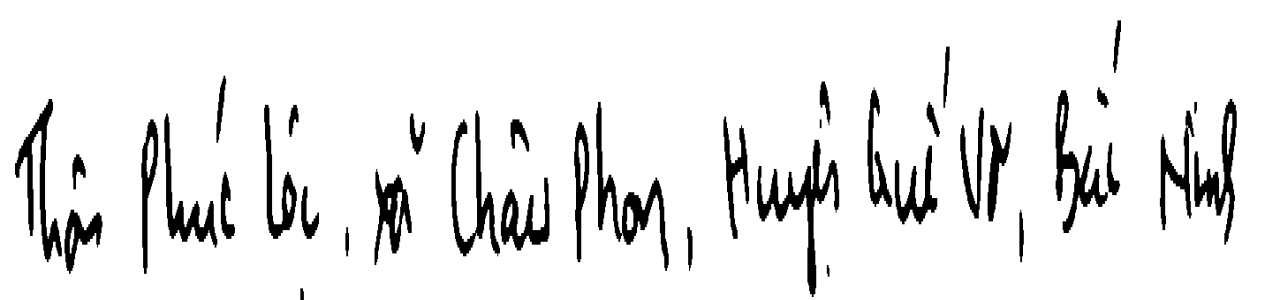 Thôn Phúc Lộc, xã Châu Phong, Huyện Quế Võ, Bắc Ninh